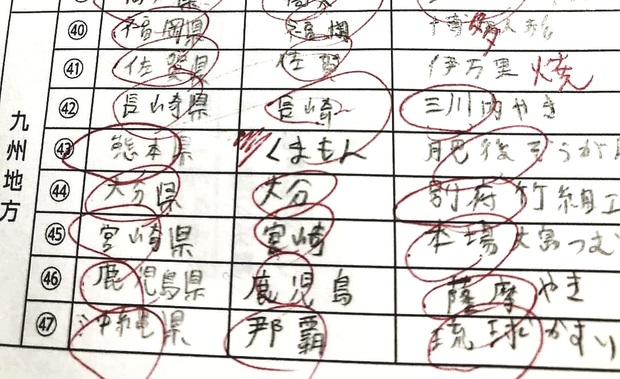 九州地方
㊵ 福岡県 福岡 博多人形
㊶ 佐賀県 佐賀 伊万里焼
㊷ 長崎県 長崎 三川内やき
㊸ 熊本県 くまもん 肥後ぞうが
㊹ 大分県 大分 別府竹細工
㊺ 宮崎県 宮崎 本場大島つむ
㊻ 鹿児島県 鹿児島 薩摩やき
㊼ 沖縄県 那覇 琉球かすり